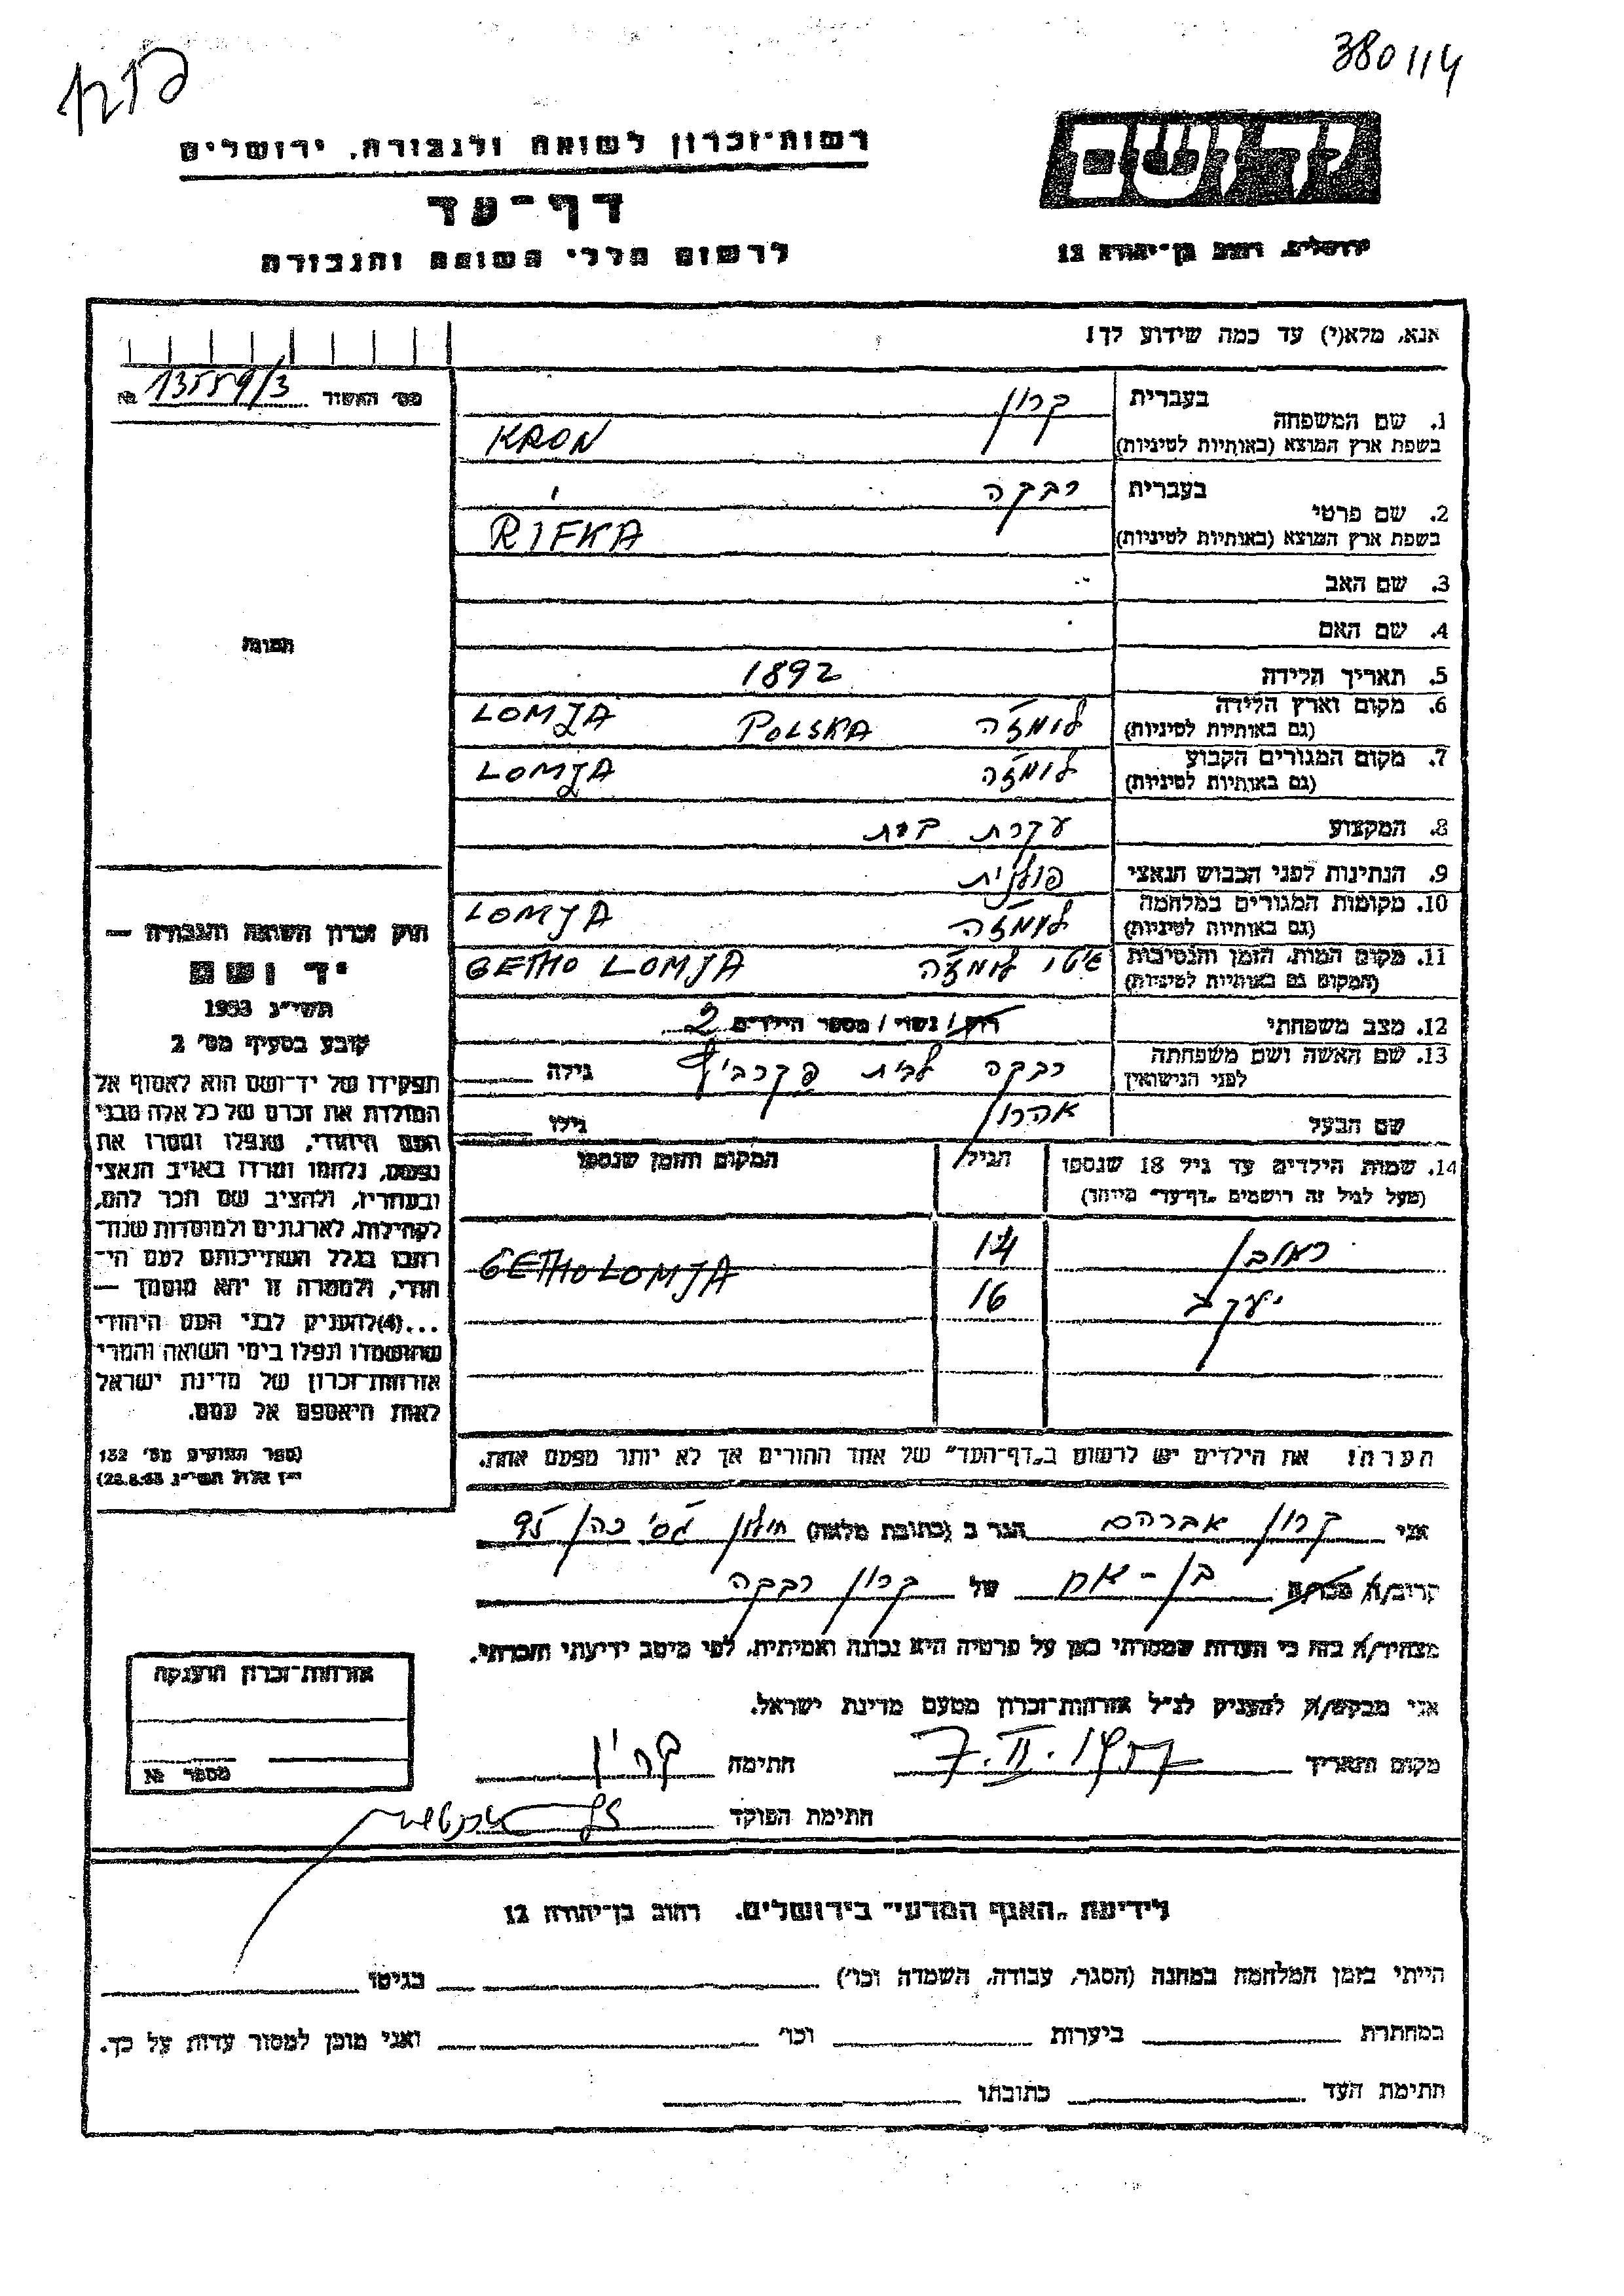 380114
רשות־זכרון לשואה ולגבורה, ירושלים
דף־עד
לרשום חללי השואה והגבורה
ירושלים, רחוב בן־יהודה 12
אנא, מלא(י) עד כמה שידוע לך!
מס' האשור 13559/3 №
1. שם המשפחה
בעברית קרון
בשפת ארץ המוצא (באותיות לטיניות) KRON
2. שם פרטי
בעברית רבקה
בשפת ארץ המוצא (באותיות לטיניות) RIFKA
3. שם האב
4. שם האם
5. תאריך הלידה 1892
6. מקום וארץ הלידה (גם באותיות לטיניות) לומזה POLSKA LOMJA
7. מקום המגורים הקבוע (גם באותיות לטיניות) לומזה LOMJA
8. המקצוע עקרת בית
9. הנתינות לפני הכבוש הנאצי פולנית
10. מקומות המגורים במלחמה (גם באותיות לטיניות) לומזה LOMJA
11. מקום המות, הזמן והנסיבות (המקום גם באותיות לטיניות) גיטו לומזה GETHO LOMJA
12. מצב משפחתי רווק / נשוי / מספר הילדים 2
13. שם האשה ושם משפחתה לפני הנישואין רבקה לבית גילה
שם הבעל אהרון גילו
14. שמות הילדים עד גיל 18 שנספו
(מעל לגיל זה רושמים „דף־עד" מיוחד)
הגיל
המקום והזמן שנספו
ראובן 14 GETHO LOMJA
יעקב 16
הערה! את הילדים יש לרשום ב„דף־העד" של אחד ההורים אך לא יותר מפעם אחת.
התמונה
חוק זכרון השואה והגבורה —
יד ושם
תשי"ג 1953
קובע בסעיף מס' 2
תפקידו של יד־ושם הוא לאסוף אל
המולדת את זכרם של כל אלה מבני
העם היהודי, שנפלו ומסרו את
נפשם, נלחמו ומרדו באויב הנאצי
ובעוזריו, ולהציב שם וזכר להם,
לקהילות, לארגונים ולמוסדות שנח־
רבו בגלל השתייכותם לעם הי־
הודי, ולמטרה זו יהא מוסמך —
...(4)להעניק לבני העם היהודי
שהושמדו ונפלו בימי השואה והמרי
אזרחות־זכרון של מדינת ישראל
לאות היאספם אל עמם.
(ספר החוקים מס' 132
י"ז אלול תשי"ג 28.8.53)
אני קרון אברהם הגר ב (כתובת מלאה) חולון כהן 95
קרוב/ה מכר/ה בן-אח של קרון רבקה
מצהיר/ה בזה כי העדות שמסרתי כאן על פרטיה היא נכונה ואמיתית, לפי מיטב ידיעתי והכרתי.
אני מבקש/ת להעניק לנ"ל אזרחות־זכרון מטעם מדינת ישראל.
מקום ותאריך 7.II.1957 חתימה קרון
חתימת הפוקד
אזרחות־זכרון הוענקה
מספר №
לידיעת „האגף המדעי" בירושלים, רחוב בן־יהודה 12
הייתי בזמן המלחמה במחנה (הסגר, עבודה, השמדה וכו') בגיטו
במחתרת ביערות וכו' ואני מוכן למסור עדות על כך.
חתימת העד כתובתו